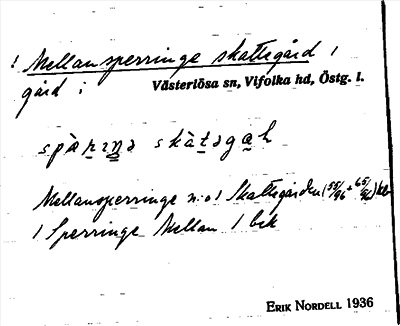 ! Mellansperringe skattegård /
gård ; Västerlösa sn, Vifolka hd, Östg. l.
spàṟıṉə skàṯəga̱ḥ
Mellansperringe n:o 1 Skattegården (55/96 + 65/96)
1 Sperringe Mellan 1 bek
ERIK NORDELL 1936